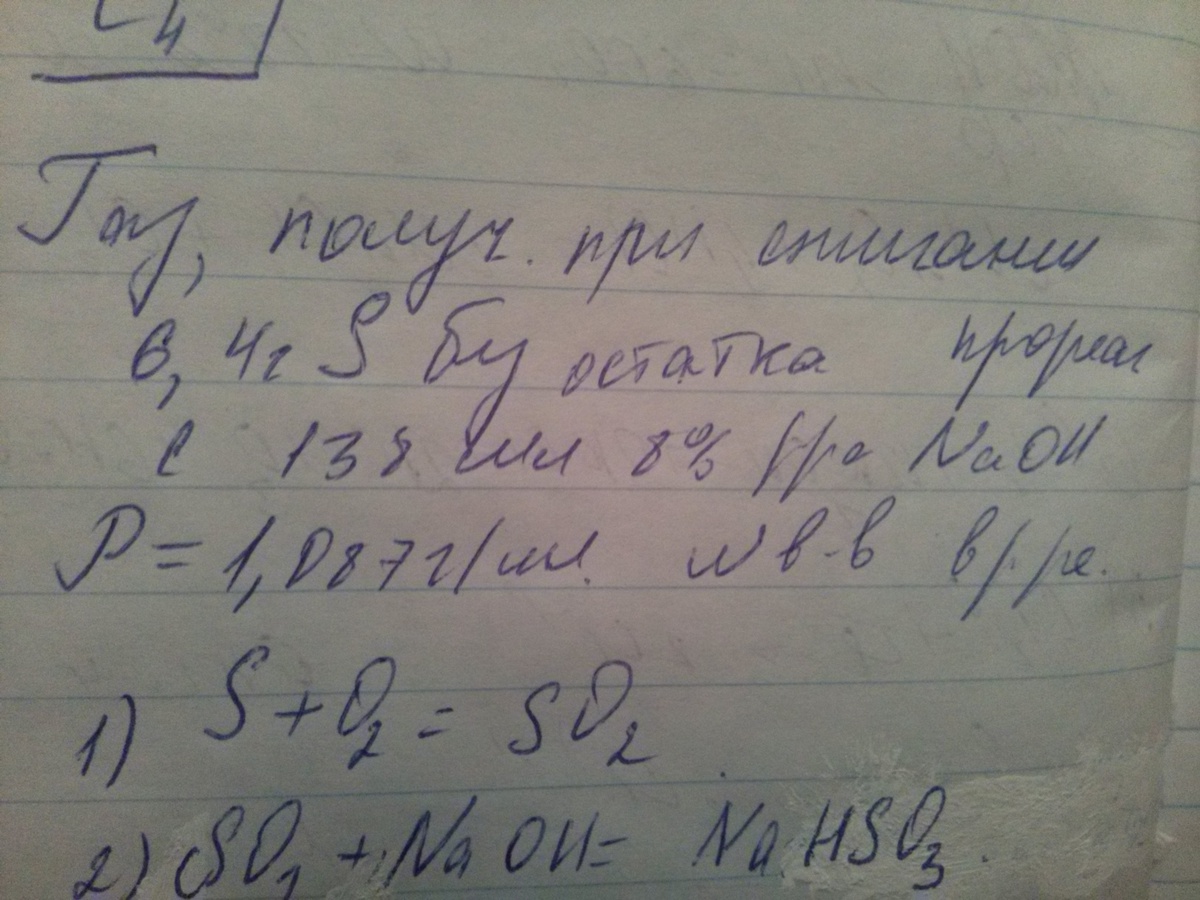 C4
Газ, получ. при сжигании
6,4г S без остатка прореаг
с 138 мл 8% р-ра NaOH
P = 1,087г/мл. W в-в в р-ре.
1) S + O2 = SO2
2) SO2 + NaOH = NaHSO3.